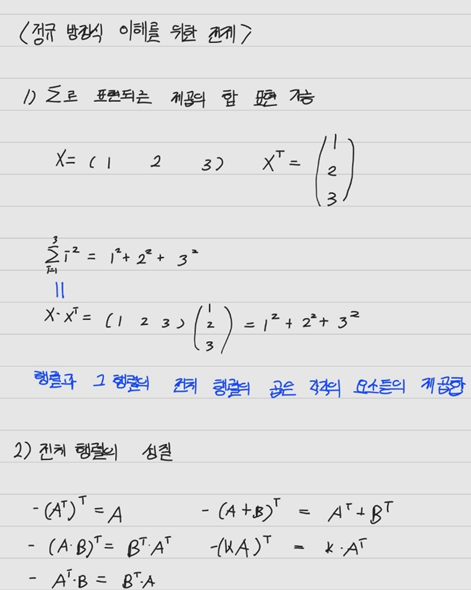 <정규 방정식 이해를 위한 전제>
1) Σ로 표현되는 제곱의 합 표현 가능
X = ( 1 2 3 ) Xᵀ = ( 1 2 3 )
∑ i=1 3 i² = 1² + 2² + 3²
||
X · Xᵀ = ( 1 2 3 ) ( 1 2 3 ) = 1² + 2² + 3²
행렬과 그 행렬의 전치 행렬의 곱은 각각의 요소들의 제곱합
2) 전치 행렬의 성질
- (Aᵀ)ᵀ = A - (A + B)ᵀ = Aᵀ + Bᵀ
- (A·B)ᵀ = Bᵀ·Aᵀ -(KA)ᵀ = K·Aᵀ
- Aᵀ·B = Bᵀ·A